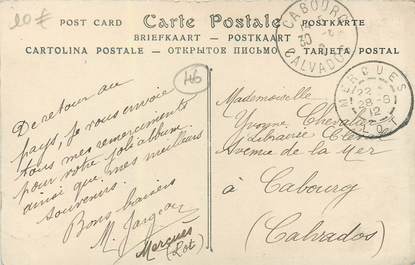 10€
POST CARD Carte Postale POSTKARTE
BRIEFKAART - POSTKAART
CARTOLINA POSTALE - ОТКРЫТОЕ ПИСЬМО - TARJETA POSTAL
CABOURG
CALVADOS
MERCUES
22
28-8
12
LOT
46
De retour au
pays, je vous envoie
tous mes remerciements
pour votre joli album
ainsi que mes meilleurs
souvenirs.
Bons baisers
M.
Mercuès
(Lot)
Mademoiselle
Yvonne Chevalier
Librairie
Avenue de la Mer
à
Cabourg
(Calvados)